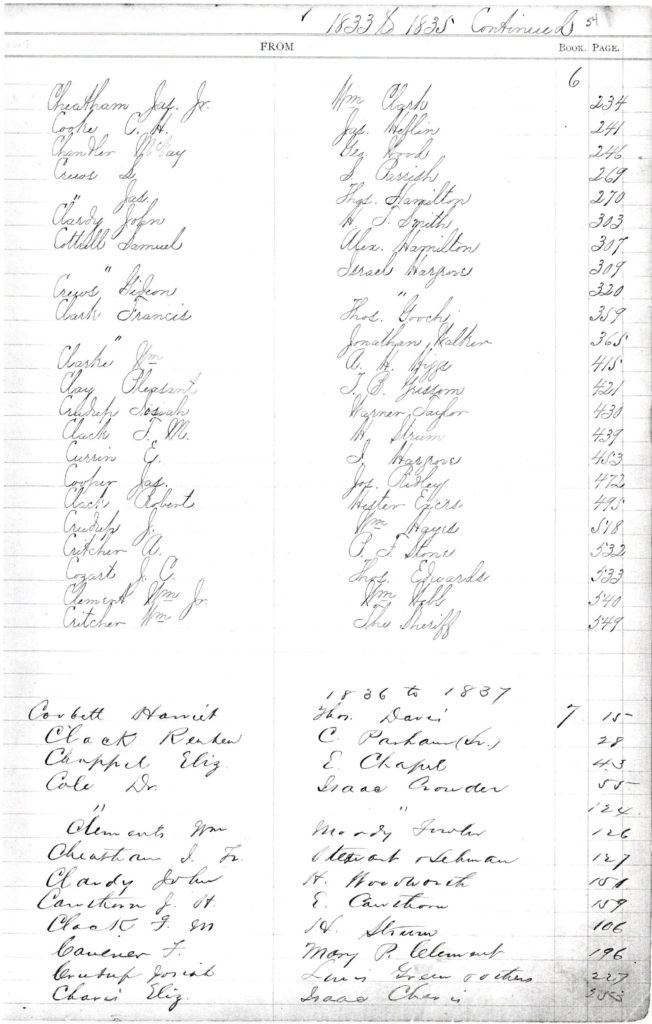 1833 to 1835 Continued 54
FROM BOOK. PAGE.
6
Cheatham Jas. Jr. Wm Clark 234
Cooke C. H. Jas. Heflin 241
Chandler McCay Geo Wood 246
Crews S. Parrish 269
" Jas. Thos. Hamilton 270
Clardy John H. T. Smith 303
Cottrell Samuel Alex. Hamilton 307
" Israel Hargrove 309
Crews Gideon " 320
Clark Francis Thos. Gooch 359
" Jonathan Walker 365
Clarke Wm A. H. Higgs 415
Clay Pleasant T. B. Grissom 421
Crudup Josiah Warner Taylor 430
Clack F. M. H. Strum 439
Currin E. I. Hargrove 453
Cooper Jas. Jos. Ridley 472
Clack Robert Hester Excrs 495
Crudup J. Wm Hayes 518
Critcher A. P. F. Stone 532
Cozart J. C. Thos. Edwards 533
Clement Wm Jr. Wm Webb 540
Critcher Wm The Sheriff 549
1836 to 1837
Corbett Harriet Thos. Davis 7 15
Clack Reuben C. Parham (Sr.) 28
Chappel Eliz. E. Chapel 43
Cole Dr. Isaac Crowder 55
" " 124
Clements Wm Moody Fowler 126
Cheatham J. Jr. Stewart 127
Clardy John H. Woodworth 151
Cawthorn J. H. E. Cawthorn 159
Clack F. M H. Strum 106
F. Mary P. Clement 196
Crudup Josiah Lewis Green others 227
Chavis Eliz. Isaac Chavis